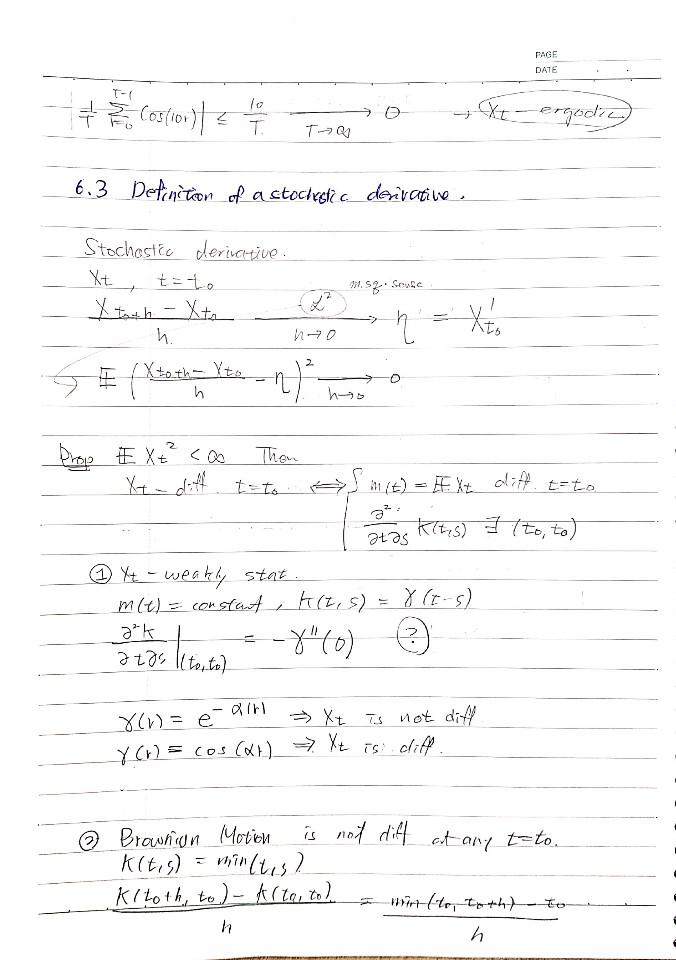 PAGE
DATE
1/T T-1 ∑ r=0 Cos(10r)| ≤ 10/T ⟶ T→∞ 0 → Xt - ergodic
6.3 Definition of a stochastic derivative.
Stochastic derivative.
Xt , t = t0
(Xt0+h - Xt0)/h ⟶ L² h→0 m.sq. sense η = X't0
E ((Xt0+h - Xt0)/h - η)² ⟶ h→0 0
Prop E Xt² < ∞ Then
Xt - diff. t=t0 ⟺ { m(t) = E Xt diff. t=t0
∂²/∂t∂s K(t,s) ∃ (t0, t0)
① Xt - weakly stat.
m(t) = constant , K(t,s) = γ(t-s)
∂²K/∂t∂s |(t0,t0) = -γ''(0) ?
γ(r) = e^-α|r| ⇒ Xt is not diff
γ(r) = cos(αr) ⇒ Xt is diff.
② Brownian Motion is not diff at any t=t0.
K(t,s) = min(t,s)
(K(t0+h, t0) - K(t0, t0))/h = (min(t0, t0+h) - t0)/h